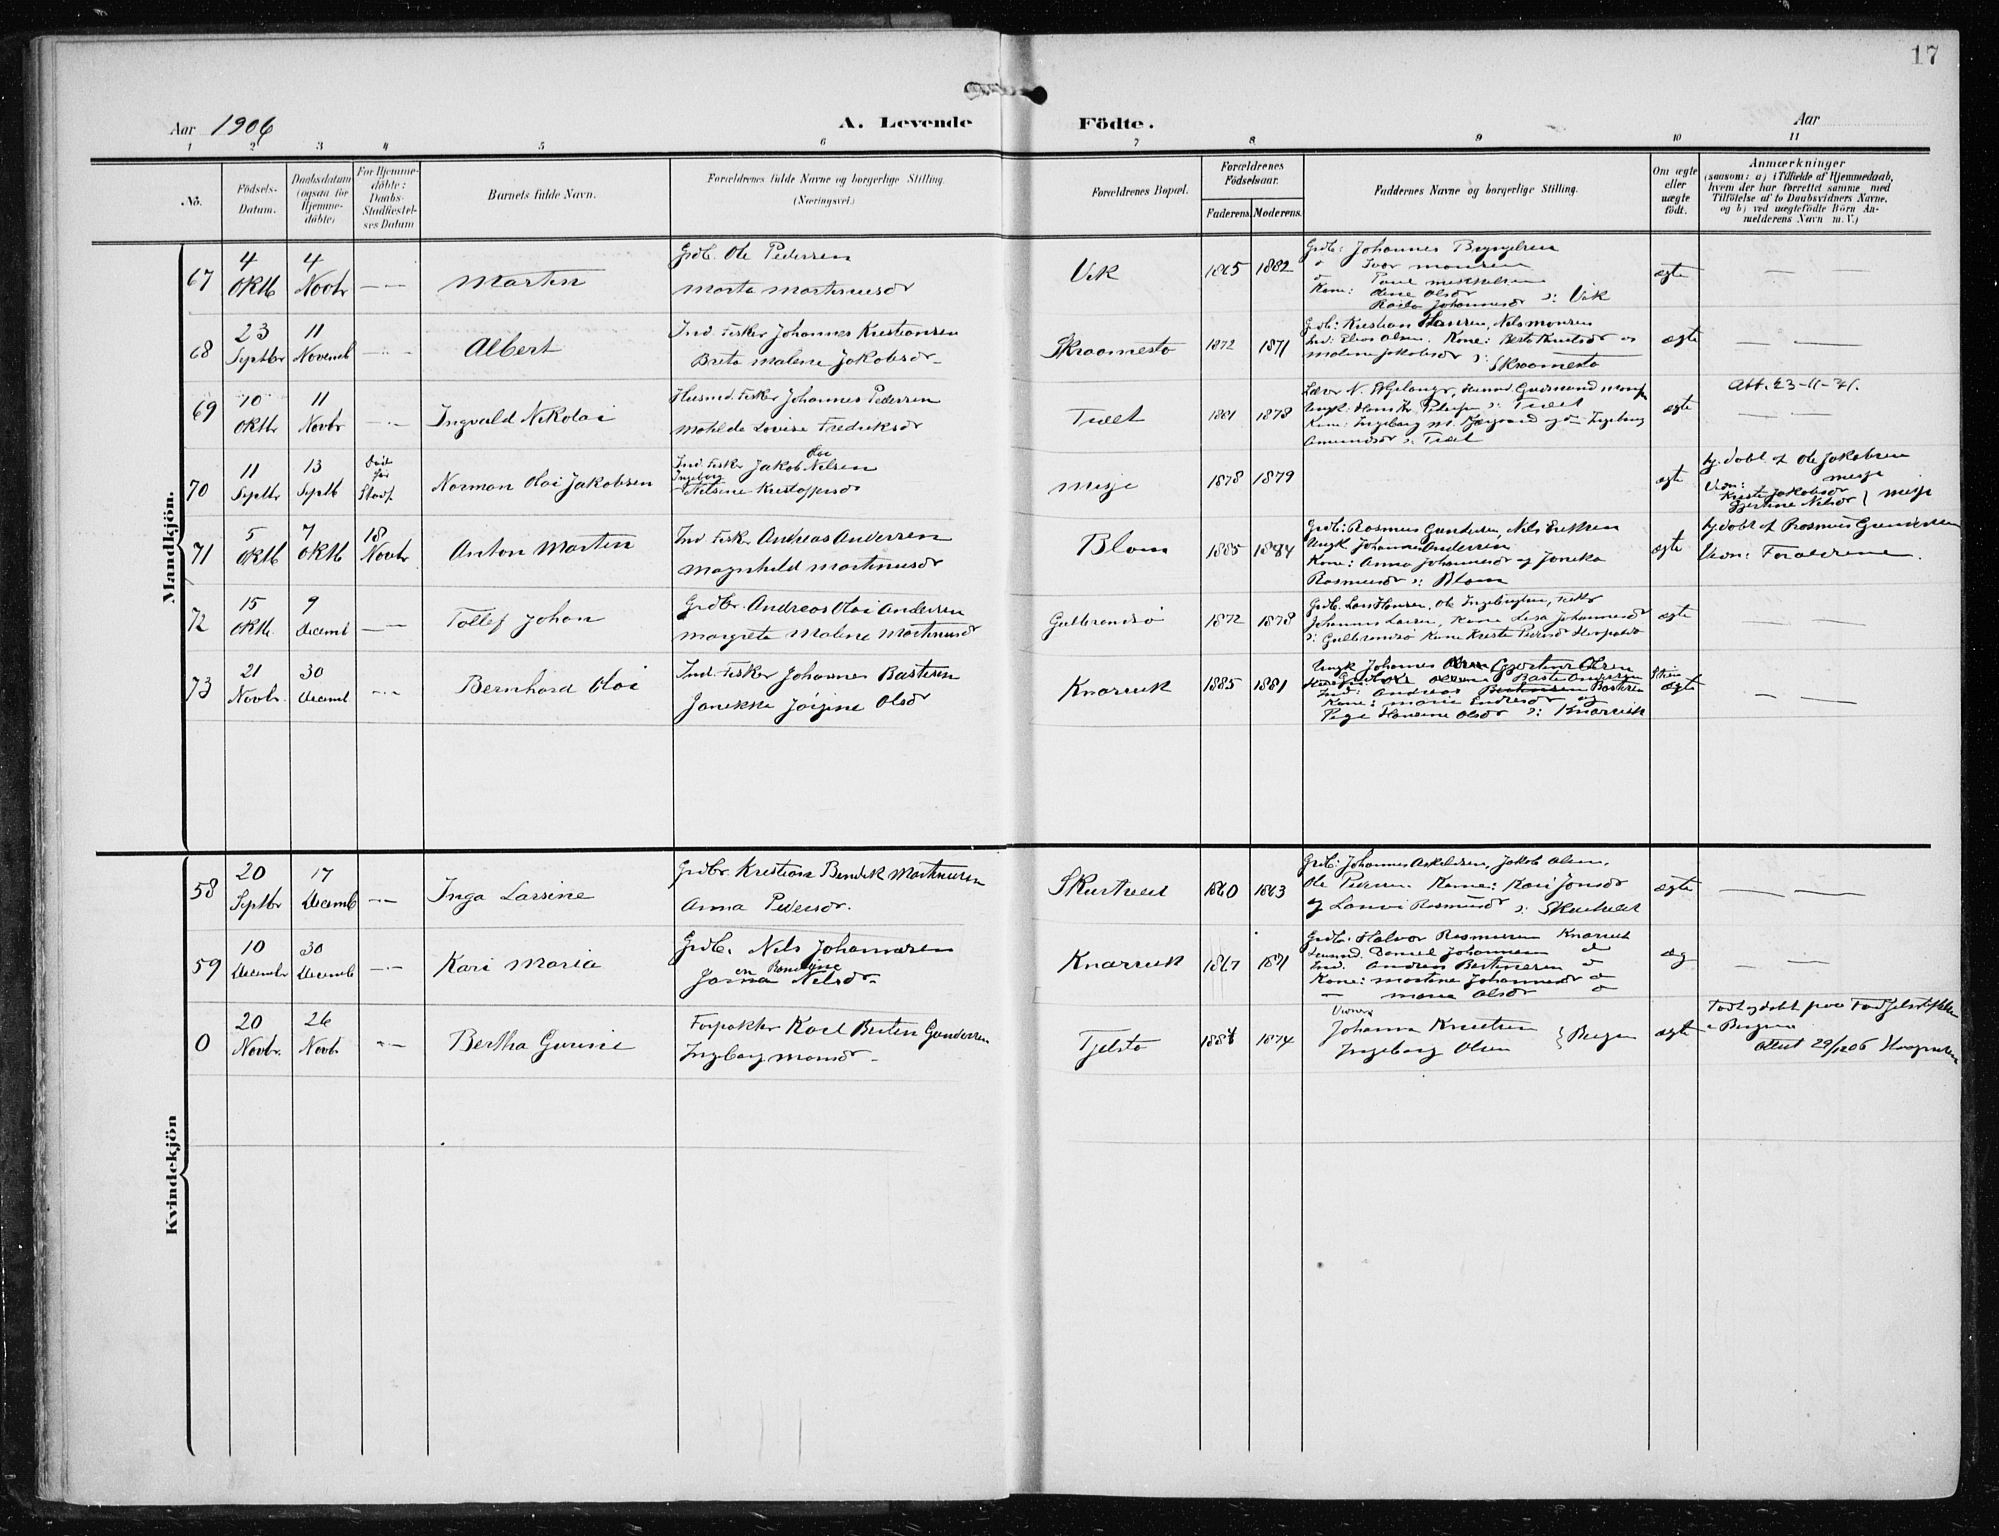 17
Aar 1906
A. Levende Födte.
Aar
1 2 3 4 5 6 7 8 9 10 11
No.
Födsels-Datum.
Daabsdatum (ogsaa for Hjemmedöbte)
For Hjemmedöbte: Daabs-Stadfæstelses Datum
Barnets fulde Navn.
Forældrenes fulde Navne og borgerlige Stilling.
(Næringsvei.)
Forældrenes Bopæl.
Forældrenes Födselsaar.
Faderens. Moderens.
Faddernes Navne og borgerlige Stilling.
Om ægte eller uægte födt.
Anmærkninger
(saasom: a) i Tilfælde af Hjemmedaab, hvem der har forrettet samme, med Tilföielse af to Daabsvidners Navne, og b) ved uægtefödte Börn Anmelderens Navn m. V.)
Mandkjön.
67 4 Oktb 4 Novbr Martin
Grdb. Ole Pedersen
Marta Martinusdr
Vik 1865 1882
Grdb: Johannes Brynjelsen
Iver Monsen
Kone: Line Olsdr
Johannesdr : Vik
ægte
68 23 Septbr 11 Novemb Albert
Ind. Fisker Johannes Kristiansen
Brita Malene Jakobsdr
Skraamestø 1872 1871
Grdb: Kristian Hansen, Nils Monsen
Ind: Elias Olsen. Kone: Berte Knutsdr og
Malene Jakobsdr : Skraamestø
ægte
69 10 Oktbr 11 Novbr Ingvald Nikolai
Husmd. Fisker Johannes Pedersen
Matilde Lovise Fredriksdr
Tvæt 1881 1878
Tvæt
Kone: Ingeborg
Amundsdr : Tvæt
ægte
Att. 23-11-41.
70 11 Septbr 13 Septb Død før Stadf.
Norman Olai Jakobsen
Ind. Fisker Jakob Olai Nilsen
Ingeborg Nilsine Kristoffersdr
Misje 1878 1879
ægte
hj.døbt af Ole Jakobsen Misje
Vidn: Kristi Jakobsdr
Gjertine Nilsdr } Misje
71 5 Oktb 7 Oktb 18 Novbr Anton Martin
Ind. Fisker Andreas Andersen
Magnhild Martinusdr
Blom 1885 1884
Grdb: Rasmus Gundersen, Nils Eriksen
Ungk Johannes Andersen
Kone: Anna Johannesdr og Janika
Rasmusdr : Blom
ægte
hj.døbt af Rasmus Gundersen
Vidn: Forældrene.
72 15 Oktb. 9 Decemb Tollef Johan
Grdbr. Andreas Olai Andersen
Margrete Malene Martinusdr
Gulbrandsø 1872 1878
Grdb. Lars Hansen, Ole
Johannes Larsen, Kone Lisa Johannesdr
: Gulbrandsø Kone Kristi Pedersdr
ægte
73 21 Novbr. 30 Decemb Bernhard Olai
Ind. Fisker Johannes Bastesen
Janikke Jørgine Olsdr
Knarvik 1885 1881
Ungk Johannes Olsen
Ind: Andreas Bastesen
Kone: Marie Endresdr og
Pige Hansine Olsdr : Knarvik
ægte
Kvindekjön
58 20 Septbr 17 Decemb Inga Larsine
Grdbr. Kristian Bendik Martinusen
Anna Pedersdr.
Skurtveit 1860 1863
Grdb: Johannes Askeldsen, Jakob Olsen,
Ole Pedersen. Kone: Kari Jonsdr
og Lauvi Rasmusdr : Skurtveit
ægte
59 10 Decembr 30 Decemb Kari Maria
Grdb. Nils Johannesen
Nilsdr
Knarvik 1867 1871
Grdb. Halvor Rasmusen Knarvik
Daniel Johannesen
Ind. Andreas Bastesen
Kone: Martine Johannesdr
Marie Olsdr
æg
0 20 Novbr. 26 Novbr Bertha Gurine
Forpakter Karl Berten Gundersen
Ingeborg Monsdr
Tjelstø 1884 1874
Vidner
Johanna Knutsen
Ingeborg Olsen } Bergen
ægte
Født og døbt paa Fødselsstiftelsen
i Bergen
Attest 29/12 06